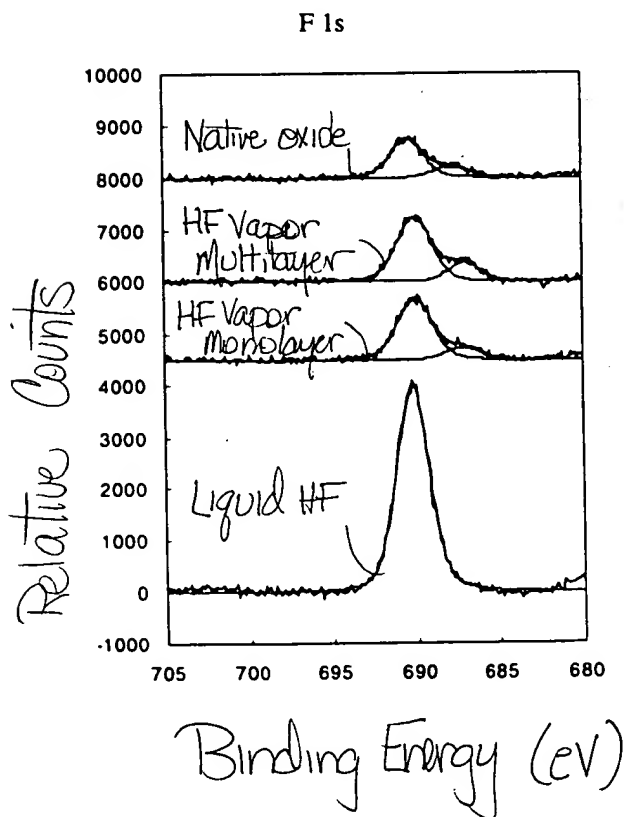 F 1s
10000
9000
8000
7000
6000
5000
4000
3000
2000
1000
0
-1000
Native oxide
HF Vapor
Multilayer
HF Vapor
monolayer
Liquid HF
Relative Counts
705 700 695 690 685 680
Binding Energy (eV)